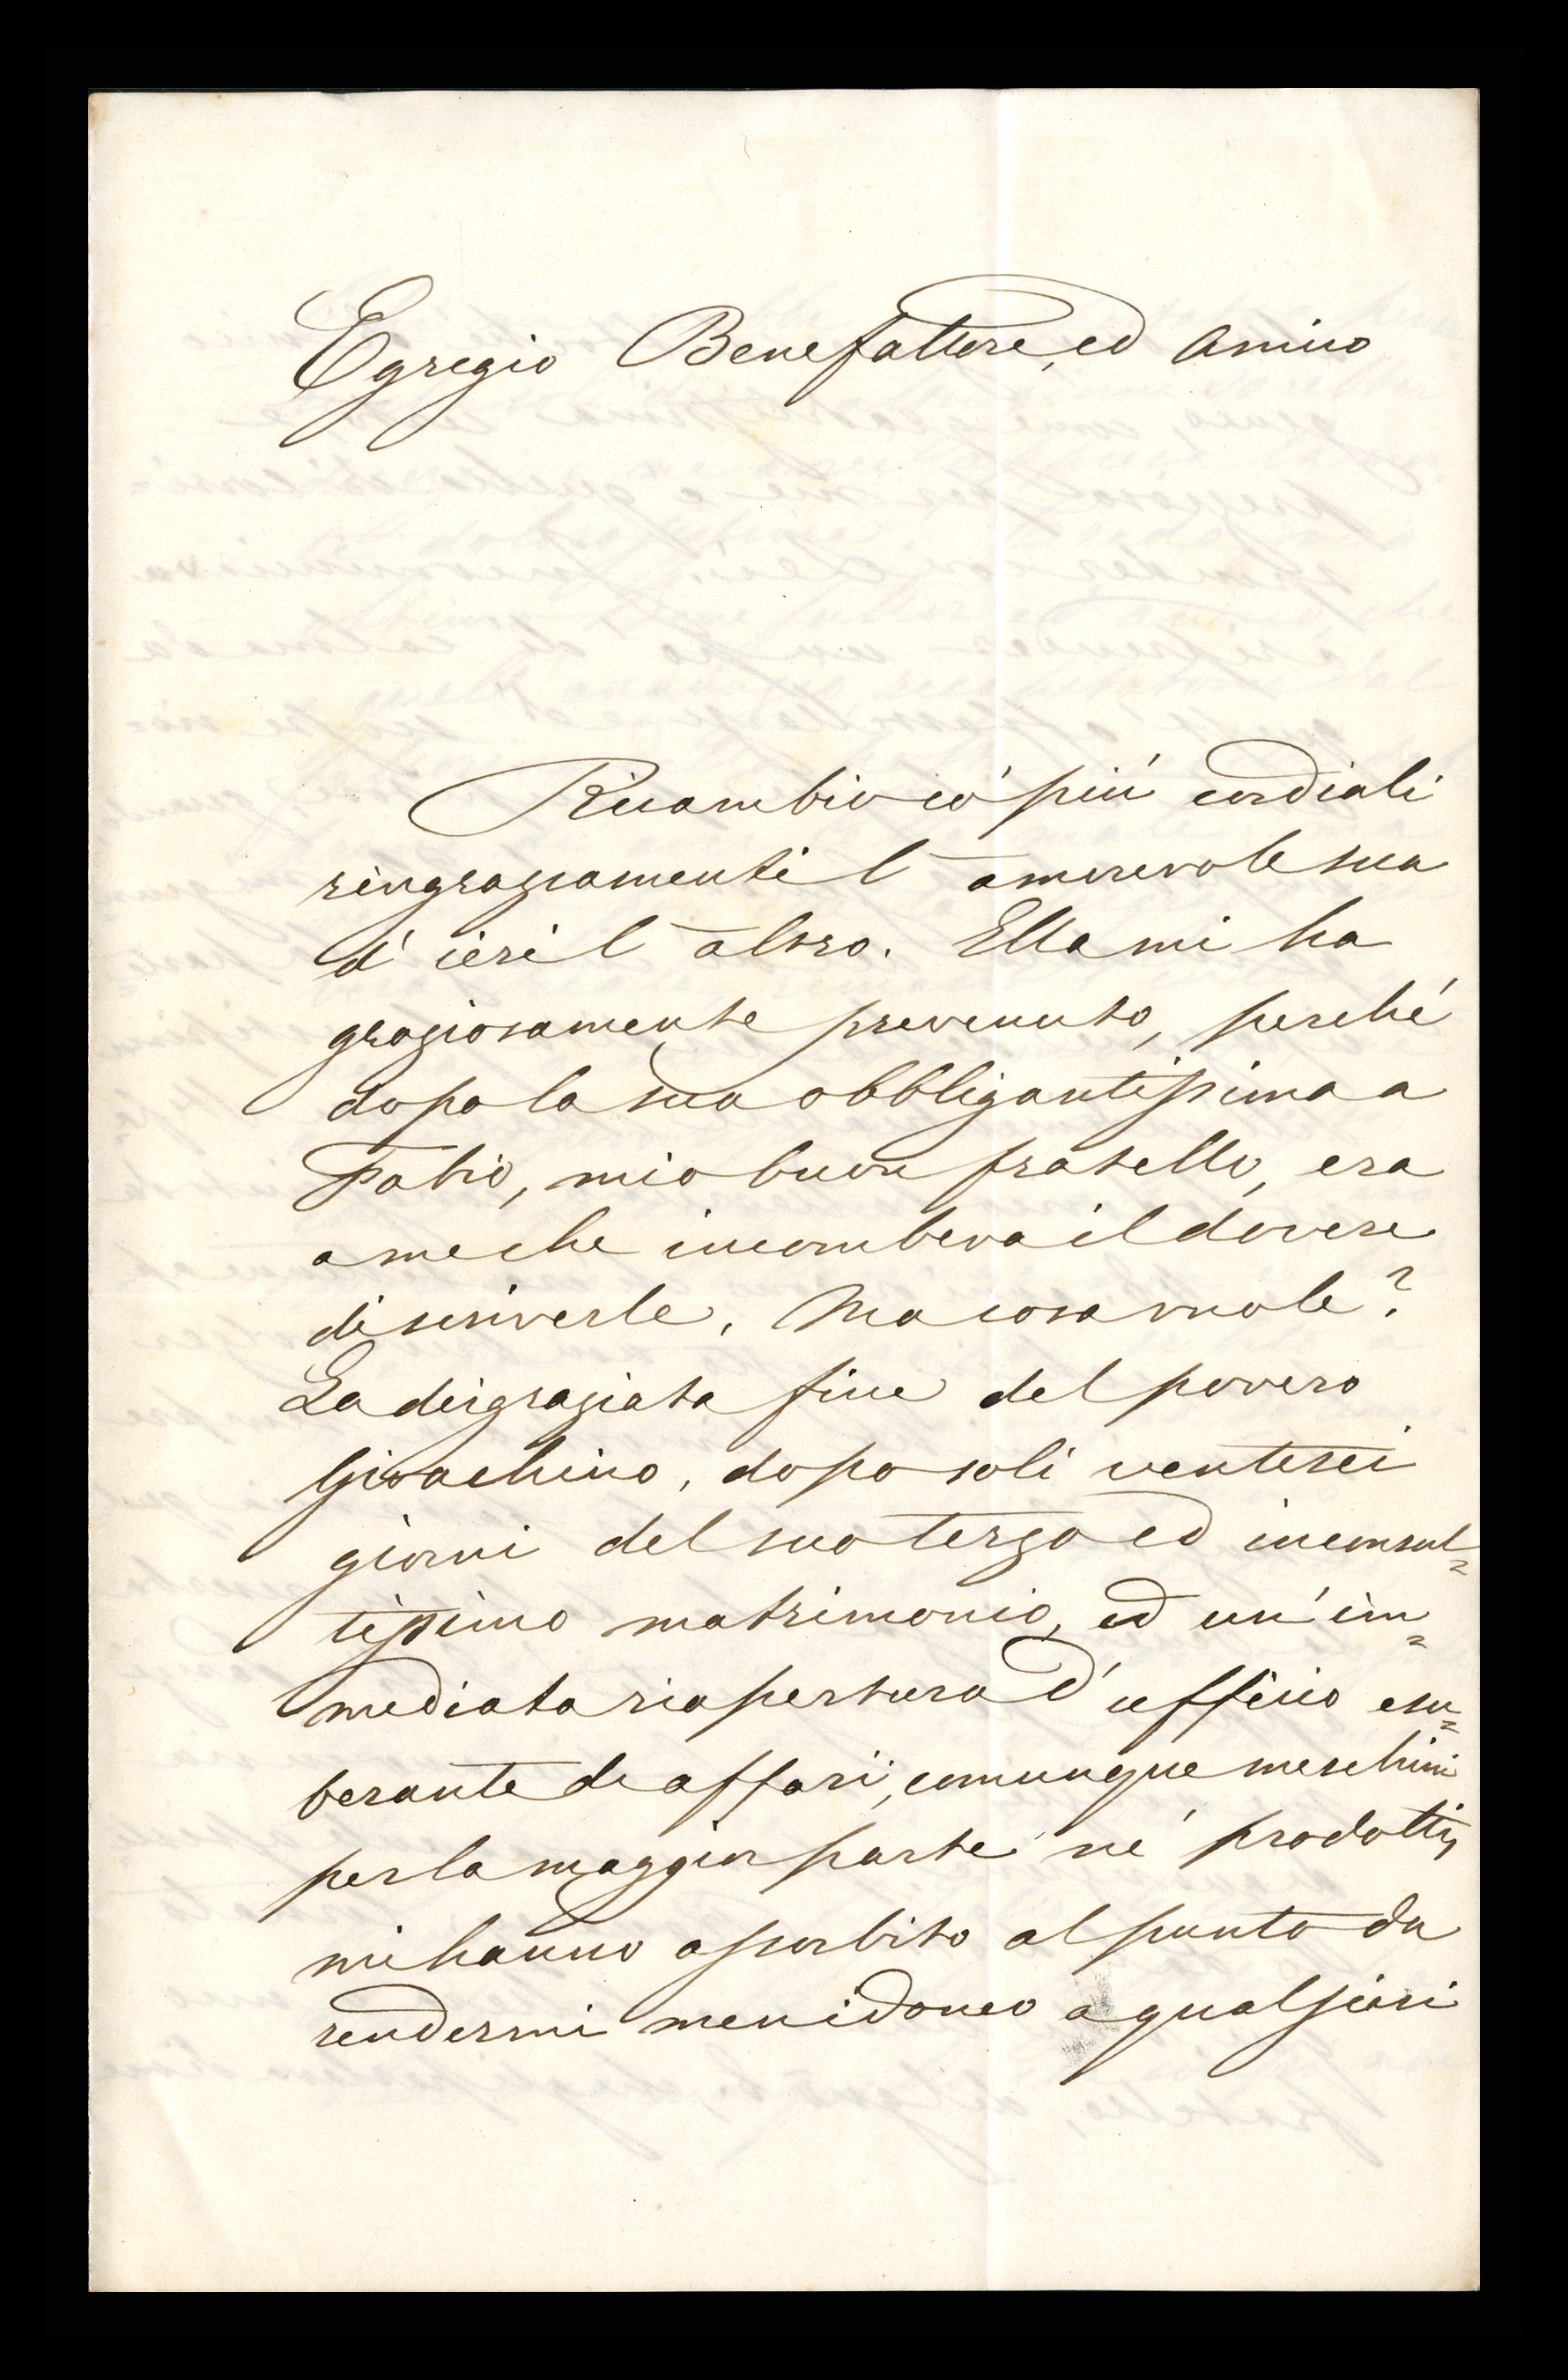 Egregio Benefattore, ed Amico
Ricambio co' più cordiali
ringraziamenti l'amorevole sua
d' ieri l'altro. Ella mi ha
graziosamente prevenuto, perché
dopo la sua obbligantissima a
Fabio, mio buon fratello, era
a me che incombeva il dovere
di scriverle. Ma cosa vuole?
La disgraziata fine del povero
Gioachino, dopo soli ventisei
giorni del suo terzo ed inconsul=
tissimo matrimonio, ed un' im=
mediata riapertura d' ufficio esu=
berante di affari, comunque meschini
per la maggior parte né prodotti,
mi hanno assorbito al punto da
rendermi men idoneo a qualsiasi